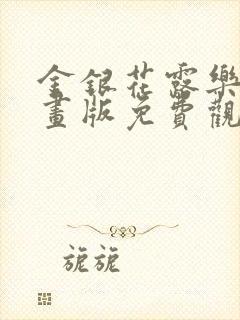 金銀花露樂
畫版免費觀
旎旎